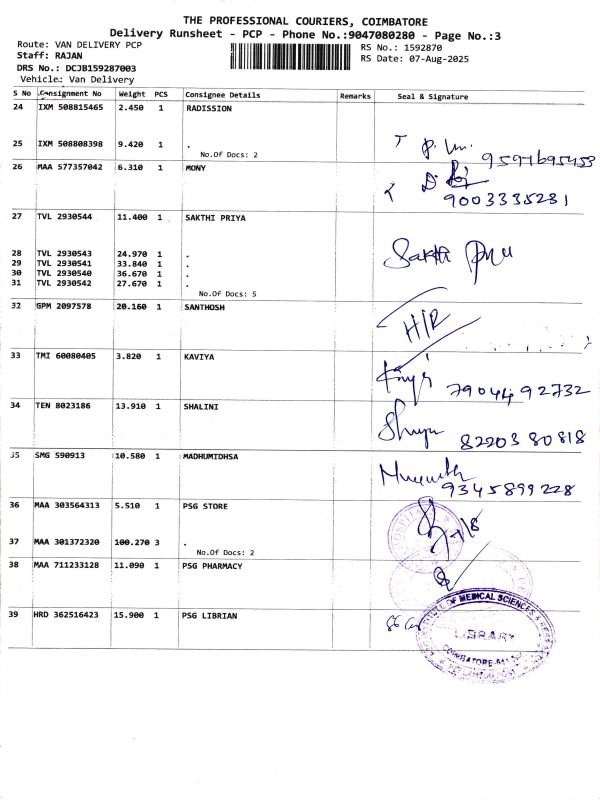 THE PROFESSIONAL COURIERS, COIMBATORE
Delivery Runsheet - PCP - Phone No.:9047080280 - Page No.:3
Route: VAN DELIVERY PCP
Staff: RAJAN
DRS No.: DCJB159287003
Vehicle: Van Delivery
RS No.: 1592870
RS Date: 07-Aug-2025
S No Consignment No Weight PCS Consignee Details Remarks Seal & Signature
24 IXM 508815465 2.450 1 RADISSION
25 IXM 508808398 9.420 1 .
No.Of Docs: 2
26 MAA 577357042 6.310 1 MONY
9003335231
27 TVL 2930544 11.400 1 SAKTHI PRIYA
Sakthi Priya
28 TVL 2930543 24.970 1 .
29 TVL 2930541 33.840 1 .
30 TVL 2930540 36.670 1 .
31 TVL 2930542 27.670 1 .
No.Of Docs: 5
32 GPM 2097578 20.160 1 SANTHOSH
H/R
33 TMI 60080405 3.820 1 KAVIYA
7904492732
34 TEN 8023186 13.910 1 SHALINI
8220380818
35 SMG 590913 10.580 1 MADHUMIDHSA
9345899228
36 MAA 303564313 5.510 1 PSG STORE
37 MAA 301372320 100.270 3 .
No.Of Docs: 2
38 MAA 711233128 11.090 1 PSG PHARMACY
39 HRD 362516423 15.900 1 PSG LIBRIAN
OF MEDICAL SCIENCES &
LIBRARY